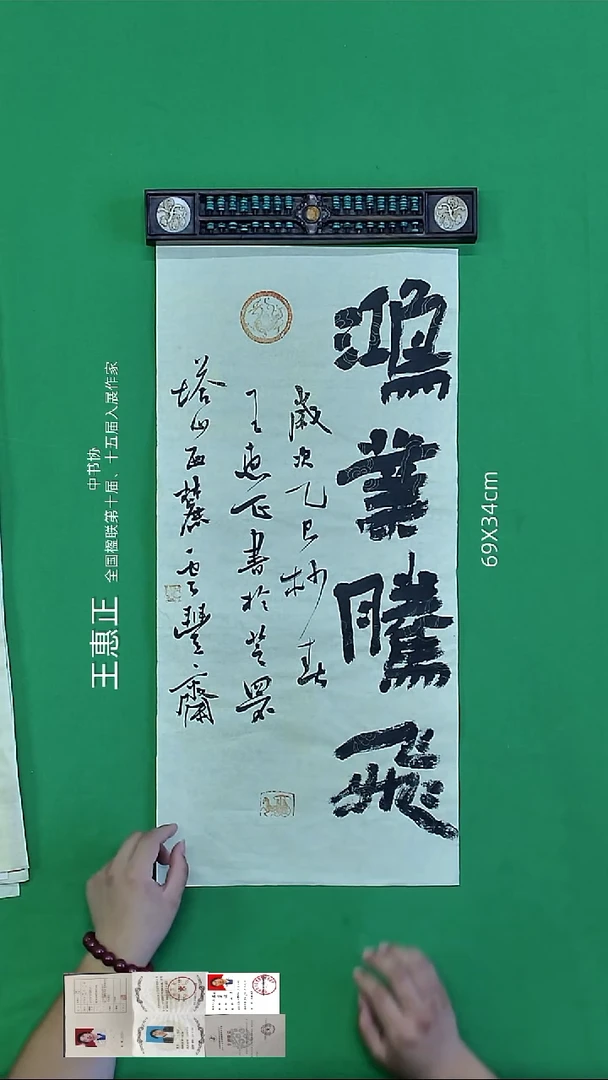 鴻業騰飛
歲次乙巳杪春
王惠正書於芝罘
塔山西麓雲豐齋
王惠正
中书协
全国楹联第十届、十五届入展作家
69X34cm